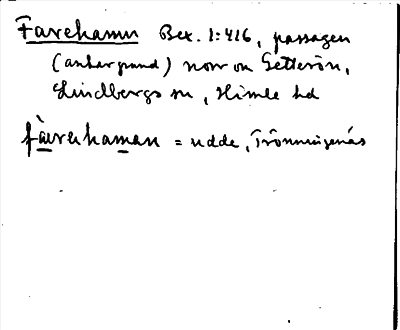 Farehamn Bex. 1:416, passagen
(ankargrund) norr om Getterön,
Lindbergs sn, Himle hd
fàrerhaman = udde, Trönningenäs